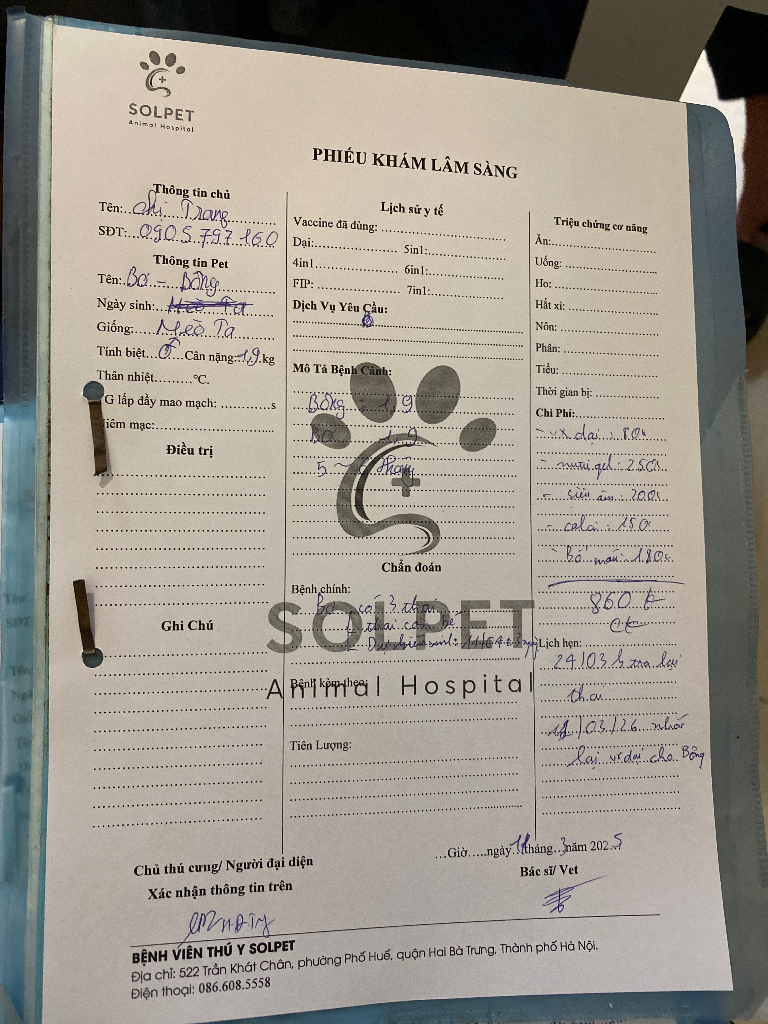 SOLPET
Animal Hospital
PHIẾU KHÁM LÂM SÀNG
Thông tin chủ
Tên: chị Trang
SĐT: 0905 797 160
Thông tin Pet
Tên: Bơ - Bông
Ngày sinh: Mèo Ta
Giống: Mèo Ta
Tính biệt ♂ Cân nặng: 1,9 kg
Thân nhiệt...........°C.
G lấp đầy mao mạch: ............s
iêm mạc:
Điều trị
Ghi Chú
Lịch sử y tế
Vaccine đã dùng:
Dại: 5in1:
4in1 6in1:
FIP: 7in1:
Dịch Vụ Yêu Cầu:
Mô Tả Bệnh Cảnh:
Bông : 1,9
Bơ 1,9
5 ~ tháng
Chẩn đoán
Bệnh chính:
Bơ có 3 thai
1 thai còn bé
Dự kiến sinh: 11/04
SOLPET
Animal Hospital
Bệnh kèm theo:
Tiên Lượng:
Triệu chứng cơ năng
Ăn:
Uống:
Ho:
Hắt xì:
Nôn:
Phân:
Tiểu:
Thời gian bị:
Chi Phí:
- vx dại : 80k
- nutri gel : 250k
- siêu âm : 200k
- calci : 150k
- Bổ máu : 180k
860 k
ck
Lịch hẹn:
24/03 ktra lại
thai
11/03/26 nhắc
lại vx dại cho Bông
...Giờ.....ngày 11 tháng 3 năm 2025
Chủ thú cưng/ Người đại diện
Xác nhận thông tin trên
Bác sĩ/ Vet
BỆNH VIÊN THÚ Y SOLPET
Địa chỉ: 522 Trần Khát Chân, phường Phố Huế, quận Hai Bà Trưng, Thành phố Hà Nội.
Điện thoại: 086.608.5558